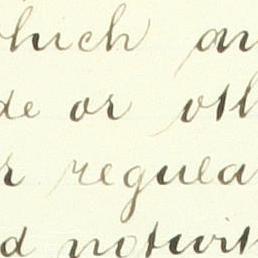 which an
de or oth
r regula
d notwith